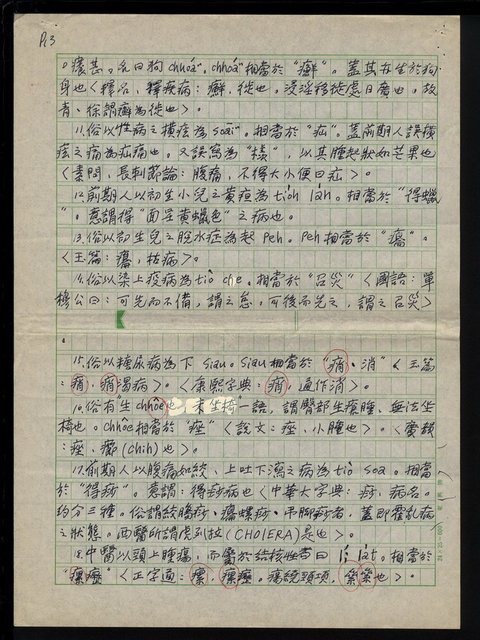 P.3
。癢甚。名曰狗chuoⁿ. chhoáⁿ相當於"癬"。蓋其在生於狗
身也〈釋名，釋疾病：癬，徙也。浸淫移徙處日廣也。故
青、徐謂癬為徙也〉。
11.俗以性病之橫痃為soāiⁿ。相當於"疝"。蓋前期人誤橫
痃之痛為疝痛也。又誤寫為"檨"，以其腫起狀如芒果也
〈素問，長刺節論：腹痛，不得大小便曰疝〉。
12.前期人以初生小兒之黃疸為tioh lah。相當於"得蠟
"。意謂得"面呈黃蠟色"之病也。
13.俗以初生兒之脫水症為起Peh. Peh相當於"㿙"。
〈玉篇：㿙，枯病〉。
14.俗以染上疫病為tiô che。相當於"召災"〈國語：單
穆公曰：可先而不備，謂之怠。可後而先之，謂之召災〉
。
15.俗以糖尿病為下siau. siau相當於"痟、消"〈玉篇
：痟，痟渴病〉。〈康熙字典：痟，通作消〉。
16.俗有"生chhôe也，未坐椅"一語，謂臀部生癢腫，無法坐
椅也。chhôe相當於"痤"〈說文：痤，小腫也〉。〈廣韻
：痤，癤(chih)也〉。
17.前期人以腹痛如絞，上吐下瀉之病為tiô soa。相當
於"得痧"。意謂：得痧病也〈中華大字典：痧，病名。
約分三種。俗謂絞腸痧、癟螺痧、吊腳痧者，蓋即霍亂病
之狀態。西醫所謂虎列拉(CHOLERA)是也〉。
18.中醫以頸上腫瘍，而屬於結核性者曰lî lat。相當於
"瘰癧"〈正字通：瘰，瘰癧。瘍繞頸項，纍纍也〉。